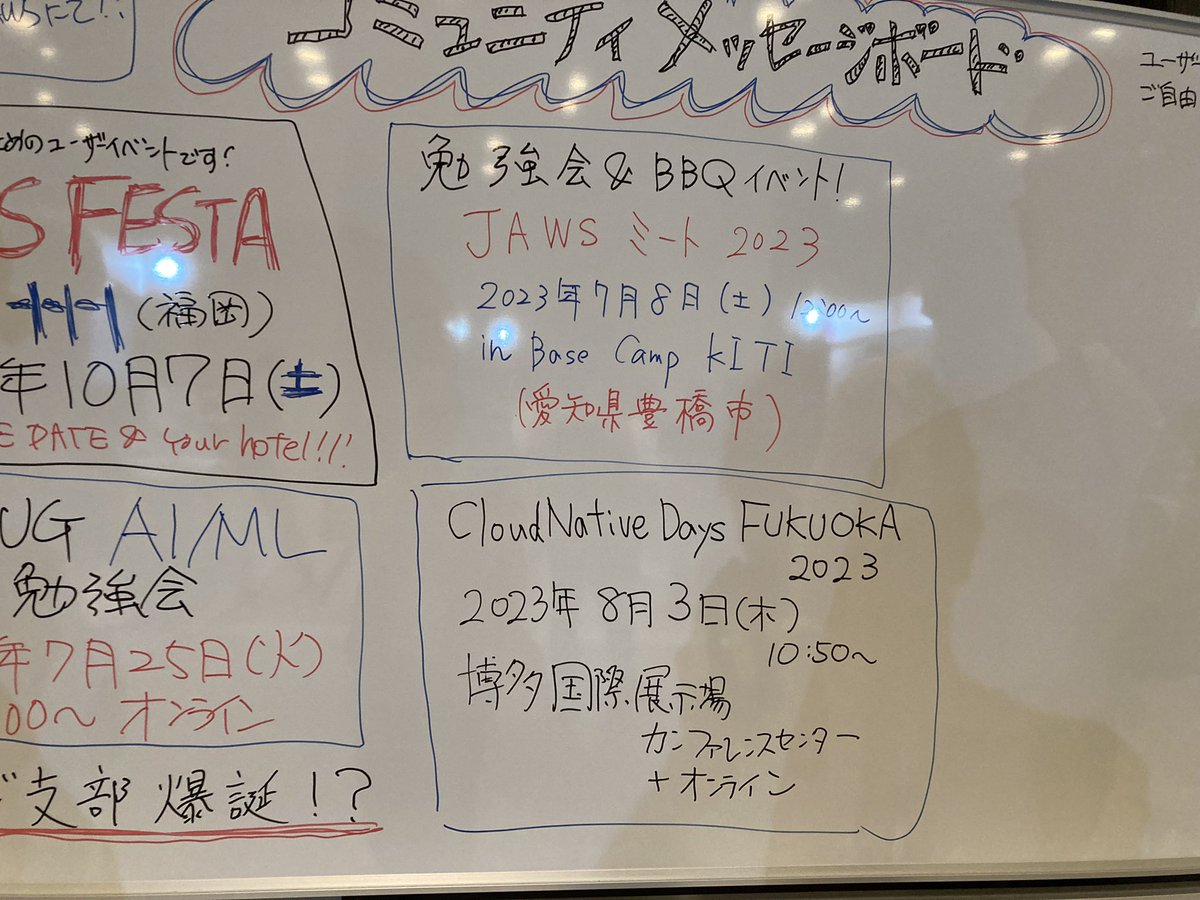 WSにて!!
コミュニティメッセージボード
ユーザ
ご自由
ためのユーザイベントです!
S FESTA
(福岡)
年10月7日(土)
E DATE & your hotel!!!
勉強会&BBQイベント!
JAWS ミート 2023
2023年7月8日(土)
in Base Camp KITI
(愛知県豊橋市)
UG AI/ML
勉強会
年7月25日(火)
00〜 オンライン
支部 爆誕!?
CloudNative Days FUKUOKA
2023
2023年 8月3日(木)
10:50〜
博多国際展示場
カンファレンスセンター
+ オンライン